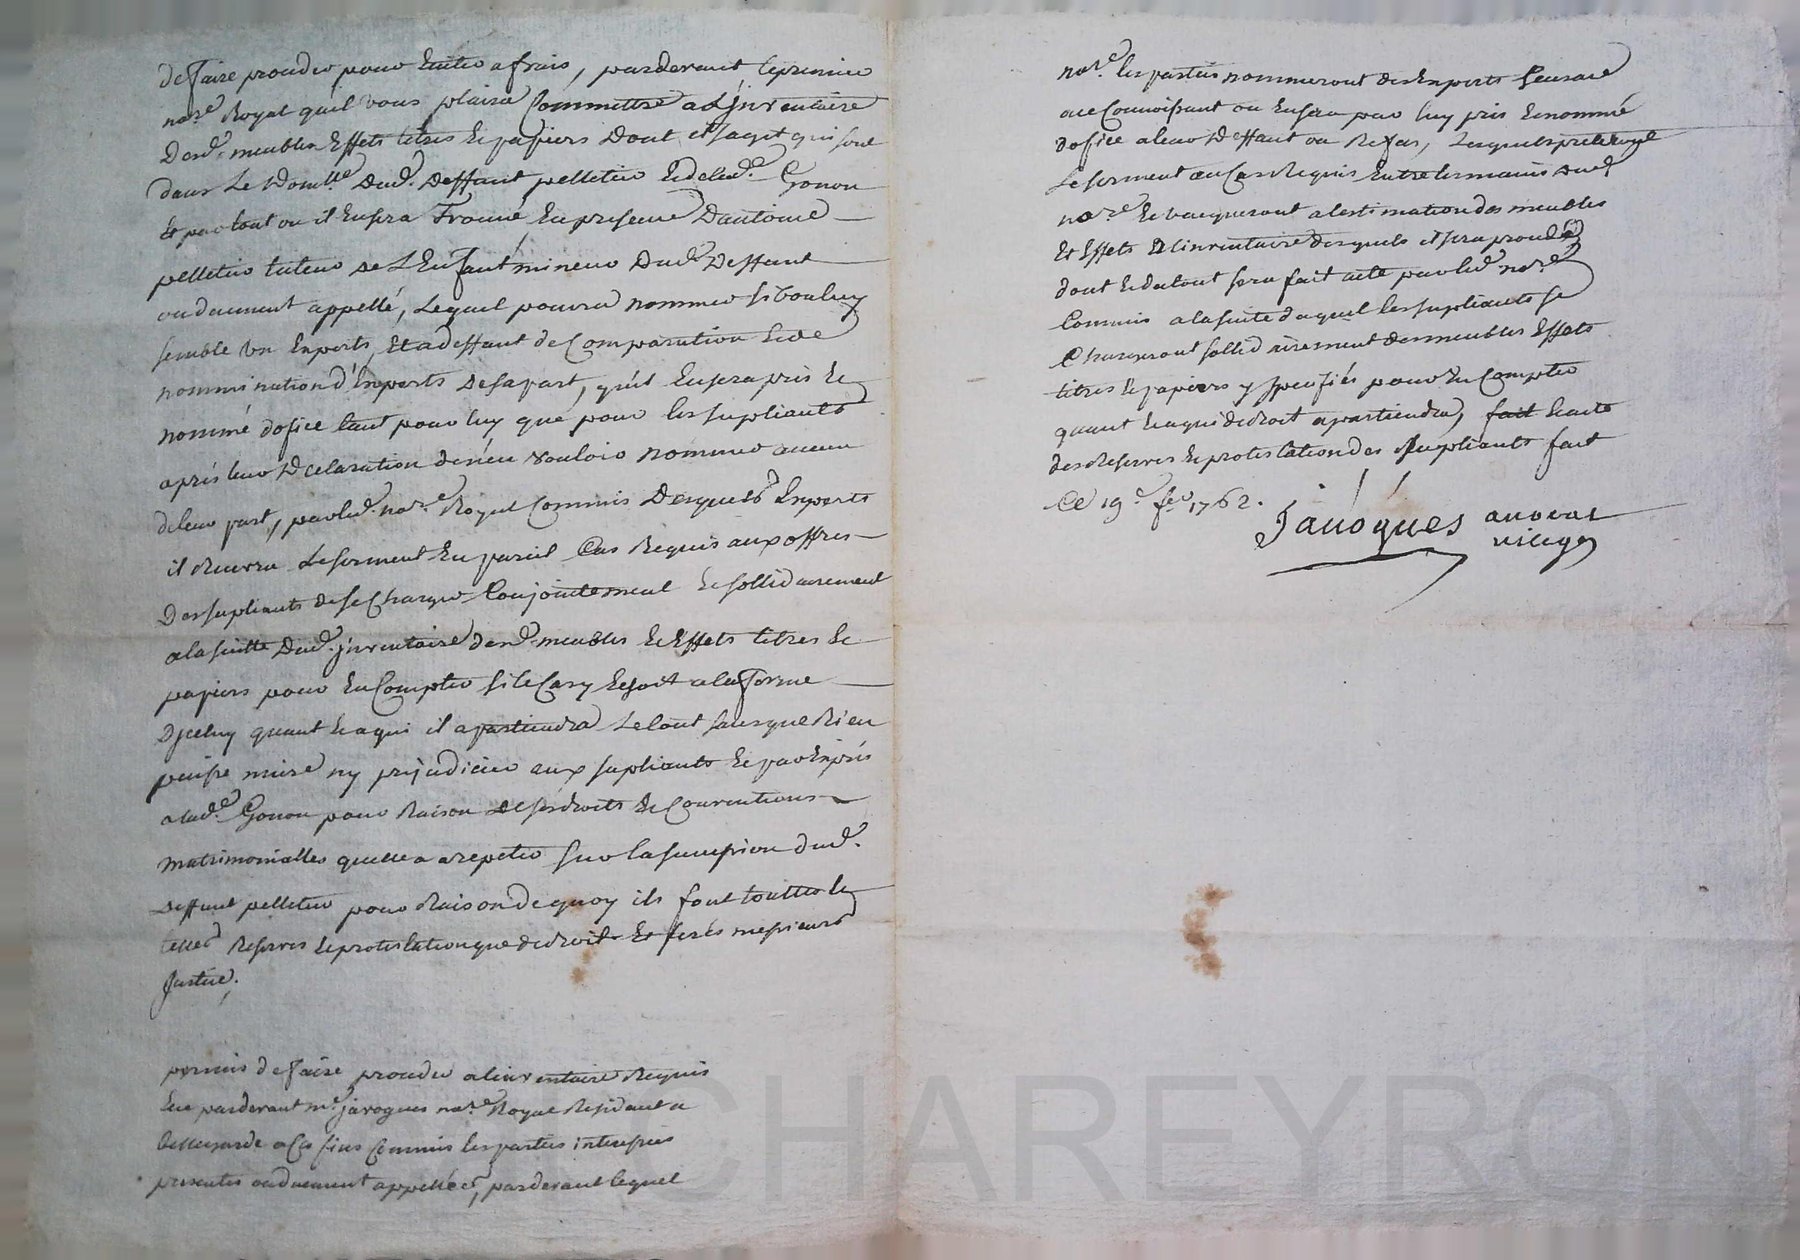 de faire proceder pour Eviter a frais, pardevant le premier
nore Royal quil vous plaira Commettre a Linventaire
Desd. meubles Effets titres Et papiers Dont il sagit qui sont
dans Le Domlle Dud. Deffunt pelletier Et de lad. Gonon
Et partout ou il En sera Trouvé En presence Dantoine
pelletier tuteur de L'Enfant mineur Dud. Deffunt
ou duement appellé, Lequel pourra nommer si bon luy
semble un Experts, Et a deffaut de Comparution Et de
nommination d'Experts de sa part, qu'il En sera pris Et
nommé dofice tant pour luy que pour les supliants
aprés leur Declaration de n'en vouloir nommer aucun
de leur part, par led. nore Royal Commis Desquels Experts
il Recevra Le serment En pareil Cas Requis aux offres
Des supliants de se Charger Conjointement Et sollidairement
a la suitte Dud. jnventaire desd. meubles Et Effets titres Et
papiers pour En Compter si le Cas y Echoit a la forme
Dycelluy quant Et a qui il apartiendra Le tout sans que Rien
puisse nuire ny prejudicier aux supliants Et par Exprés
a lad. Gonon pour Raison de ses droits Et Conventions
matrimonialles quelle a a repeter sur la succession dud.
deffunt pelletier pour Raison de quoy ils font touttes Et
telles Reserves Et protestation que de droit Et ferés messieurs
Justice.
permis de faire proceder a linventaire Requis
Et ce pardevant me javogues nore Royal Residant a
bellegarde a Ces fins Commis les parties interessées
presentes ou duement appellées, pardevant lequel
nore les parties nommeront des Experts gens a ce
Connoissant ou En sera par luy pris Et nommé
dofice a leur Deffaut ou Refus, Lesquels preteront
Le serment au Cas Requis Entre les mains dud.
nore Et vacqueront a lestimation des meubles
Et Effets a linventaire desquels il sera procedé
dont Et du tout sera fait acte par led. nore
Commis a la suite duquel les supliants se
Chargeront sollidairement des meubles Effets
titres Et papiers y specifiés pour En Compter
quant Et a qui de droit apartiendra, fait Et acte
des Reserves Et protestation des supliants fait
Ce 19e fer 1762.
Javogues avocat
viceg.
CHAREYRON